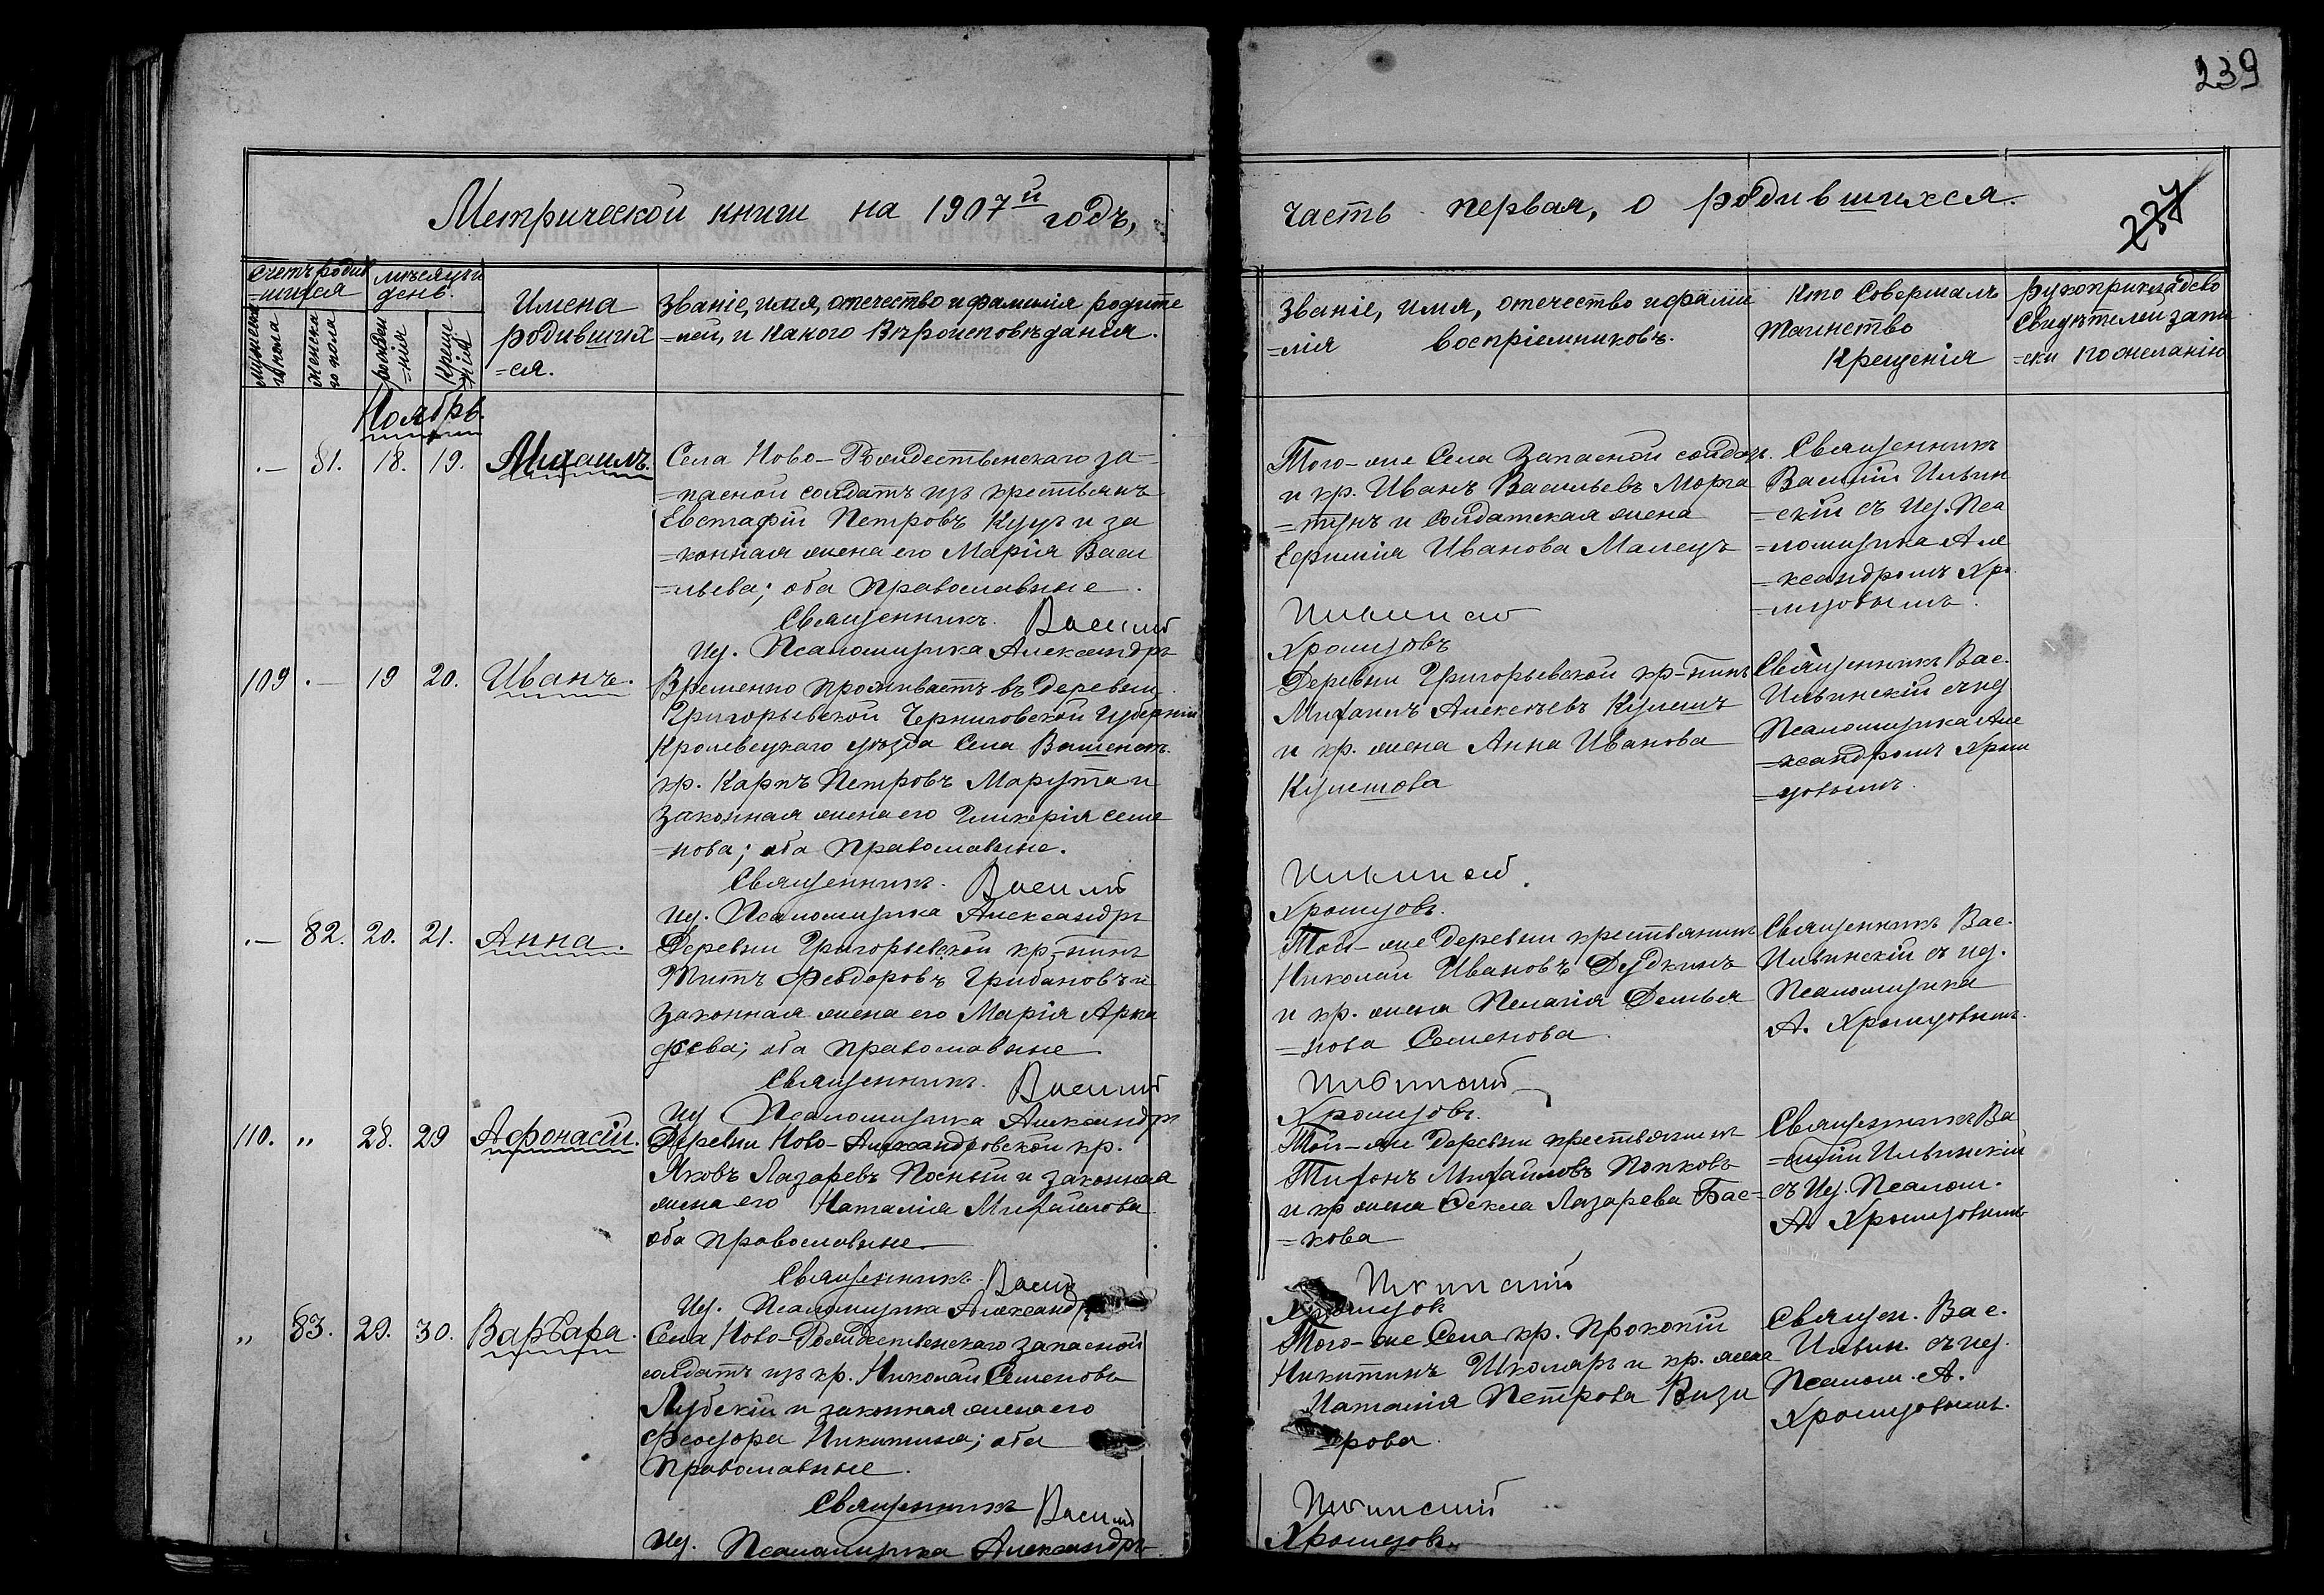 239
237
Метрической книги на 1907й годъ,
часть первая, о родившихся
Счетъ родив
=шихся
мѣсяцъ и
день.
мужеска
го пола
женска
го пола
рожде
=нія
креще
=нія
Имена
родивших
=ся.
Званіе, имя, отечество и фамилія родите
=лей, и какого Вѣроисповѣданія.
Званіе, имя, отечество и фами
=лія воспріемниковъ.
Кто Совершалъ
таинство
Крещенія
Рукоприкладство
Свидѣтелей запи
=ски по желанію
Ноябрь.
.— 81. 18. 19. Михаилъ.
Села Ново-Рождественскаго за-
=пасной солдатъ изъ крестьянъ
Евстафій Петровъ Куцъ и за
=конная жена его Марія Васи
=льева; оба Православные.
Священникъ. Василій
Ид. Псаломщика Александръ
Того-же Села Запасной солдатъ
и кр. Иванъ ВасильевъМорга
=тунъ и солдатская жена
Ефимія Ивановa Малецъ
Ильинскій
Хромцовъ
Священникъ
Василій Ильин
=скій съ Ид. Пса
=ломщика Але
=ксандромъ Хро
=мцовымъ.
109 .— 19 20. Иванъ.
Временно проживаетъ въ деревни
Григорьевской Черниговской Губерніи
Кролевецкаго уѣзда Села
кр. Карпъ Петровъ Марута и
Законная жена его Гликерія Семе
=нова; оба Православные.
Священникъ. Василій
Ид. Псаломщика Александръ
Деревни Григорьевской кр-нинъ
Михаилъ Алексѣевъ Кулешъ
и кр. жена Анна Иванова
Кулешова
Ильинскій
Хромцовъ.
Священникъ Вас.
Ильинскій съ ид
Псаломщика Але
=ксандромъ Хром
=цовымъ.
.— 82. 20. 21. Анна.
Деревни Григорьевской кр-нинъ
Титъ Феодоровъ Грибановъ и
Законная жена его Марія Арка
дьева; оба православные.
Священникъ. Василій
Ид Псаломщика Александръ
Той-же деревни крестьянинъ
Николай Ивановъ Дудкинъ
и кр. жена Пелагія Демья
=нова Семенова.
Ильинскій
Хромцовъ.
Священникъ Вас.
Ильинскій съ ид.
Псаломщика
А. Хромцовымъ.
110. „ 28. 29 Афонасій.
Деревни Ново-Александровской кр.
Яковъ Лазаревъ Посный и законная
жена его Наталія Михайлова
оба православные
Священникъ. Василій
Ид. Псаломщика Александръ
Той-же деревни крестьянинъ
Тихонъ Михайловъ Попковъ
и кр жена Фекла Лазарева Бас=
=кова
Ильинскій
Хромцовъ
Священникъ Ва
=силій Ильинскій
съ Ид. Псалом.
А. Хромцовымъ
„ 83. 29. 30. Варвара.
Села Ново-Рождественскаго запасной
солдатъ изъ кр. Николай Семеновъ
Лубскій и законная жена его
Феодора Никитина; оба
Православные.
Священникъ Василій
Ид. Псаломщика Александръ
Того-же Села кр. Прокопій
Никитинъ Школяръ и кр. жена
Наталія Петрова Визи
=рова
Ильинскій
Хромцовъ.
Священ. Вас.
Ильин. съ ид.
Псалом. А.
Хромцовымъ.